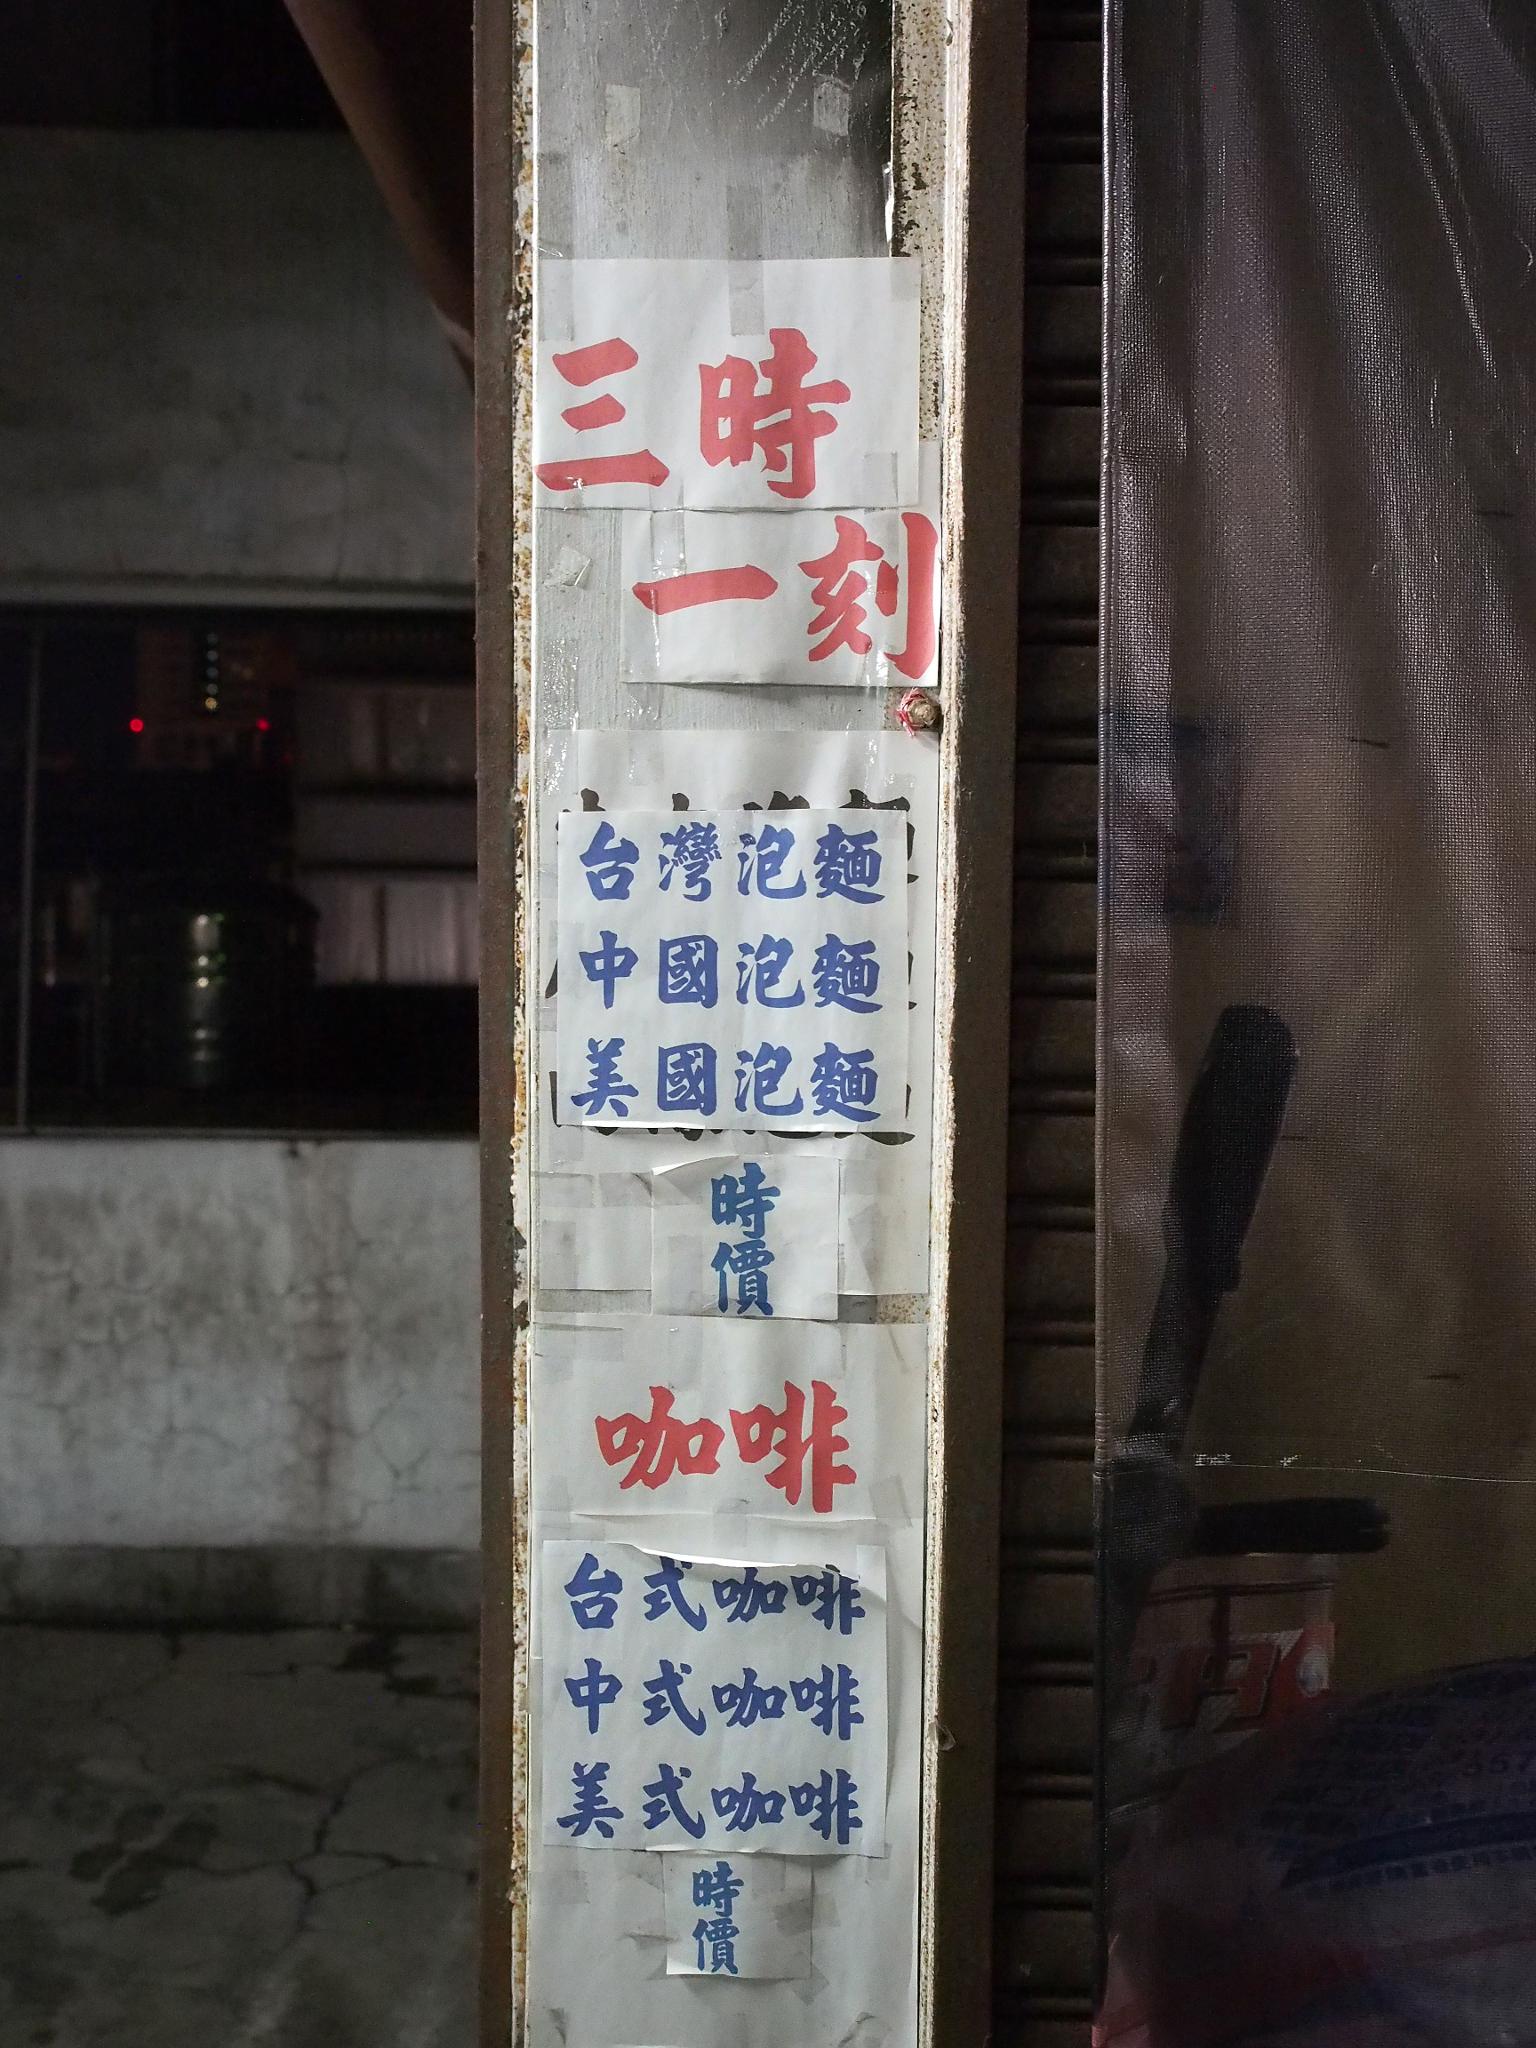 三時
一刻
台灣泡麵
中國泡麵
美國泡麵
時
價
咖啡
台式咖啡
中式咖啡
美式咖啡
時
價